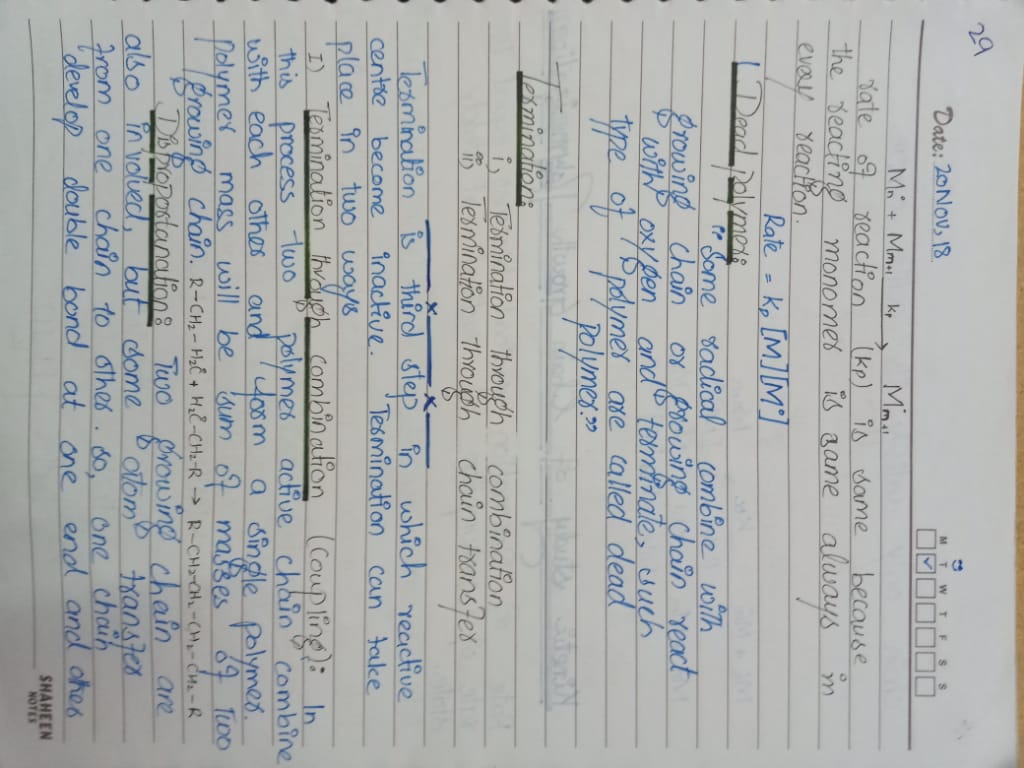 29
Date: 20Nov,18
M T W T F S S
Mṅ + Mm+1 kp → Ṁm+1
rate of reaction (kp) is same because
the reacting monomer is same always in
every reaction.
Rate = kp [M][Ṁ]
Dead polymer:
"Some radical combine with
growing chain or growing chain react
with oxygen and terminate, such
type of polymer are called dead
polymer."
Termination:
i, Termination through combination
ii) Termination through chain transfer
Termination is third step in which reactive
centre become inactive. Termination can take
place in two ways
I) Termination through combination (Coupling): In
this process two polymer active chain combine
with each other and form a single polymer.
Polymer mass will be sum of masses of two
growing chain. R-CH₂-HĊ + HĊ-CH₂-R → R-CH₂-CH₂-CH₂-CH₂-R
Disproportanation: Two growing chain are
also involved, but some atom transfer
from one chain to other. so, one chain
develop double bond at one end and other
SHAHEEN
NOTES